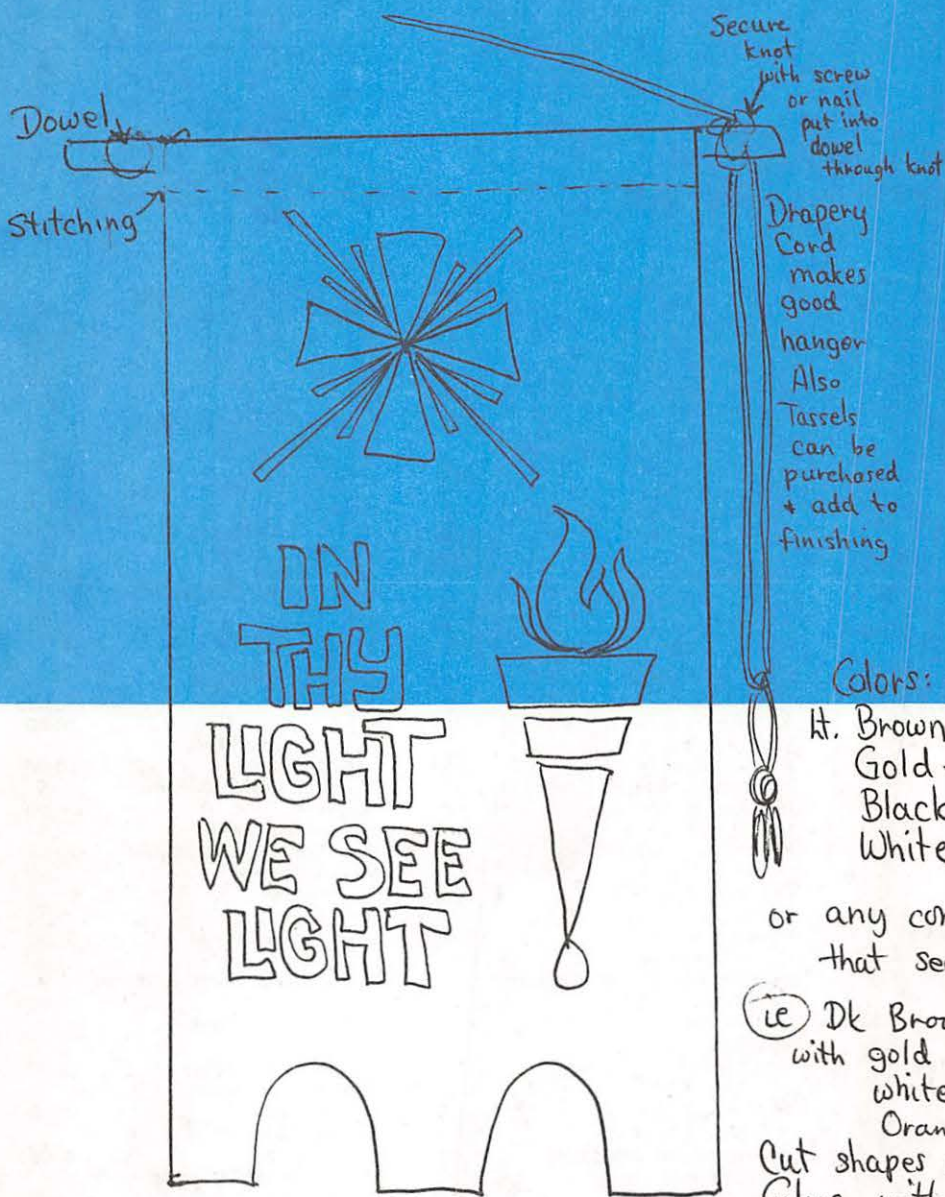 Secure
knot
with screw
or nail
put into
dowel
through knot
Dowel
Stitching
Drapery
Cord
makes
good
hanger
Also
Tassels
can be
purchased
+ add to
finishing
IN
THY
LIGHT
WE SEE
LIGHT
Colors:
Lt. Brown
Gold -
Black
White
or any
that
ie Dk
with gold
white
Cut shapes